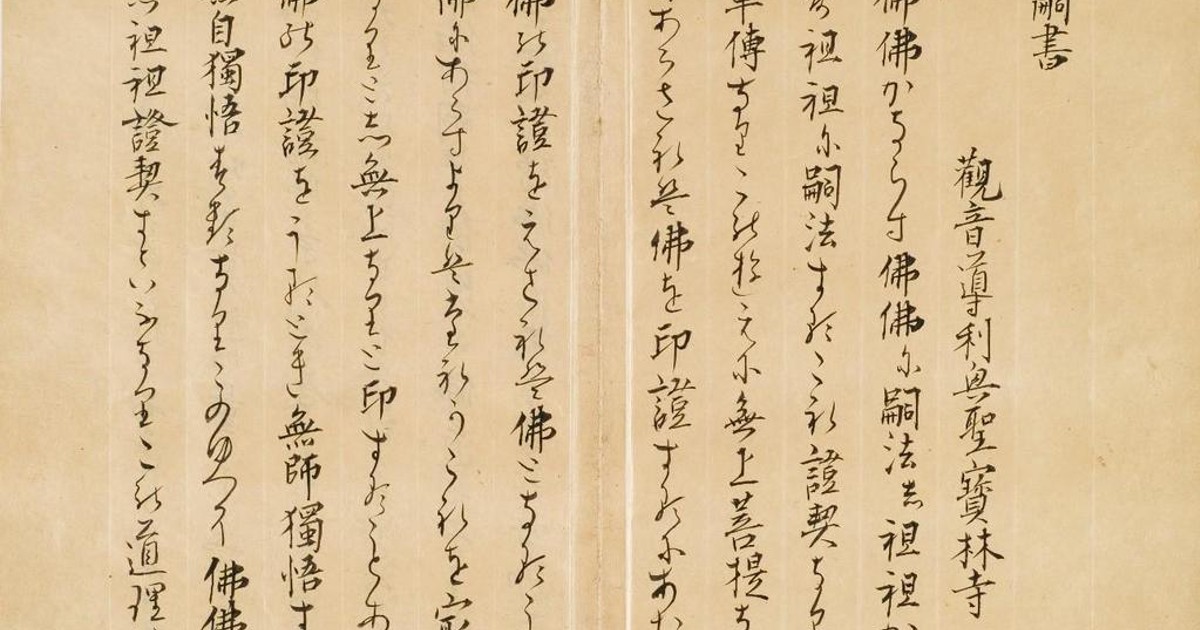 嗣書
觀音導利興聖寶林寺
佛佛かならす佛佛に嗣法し祖祖か
す祖祖に嗣法するこれ證契なり
單傳なりこのゆゑに無上菩提な
あらされは佛を印證するにあた
佛の印證をえされは佛となるこ
佛にあらすよりはたれかこれを㝡
なりとし無上なりと印することあ
佛の印證をうるとき無師獨悟す
無自獨悟するなりこのゆへに佛佛
し祖祖證契すといふなりこの道理